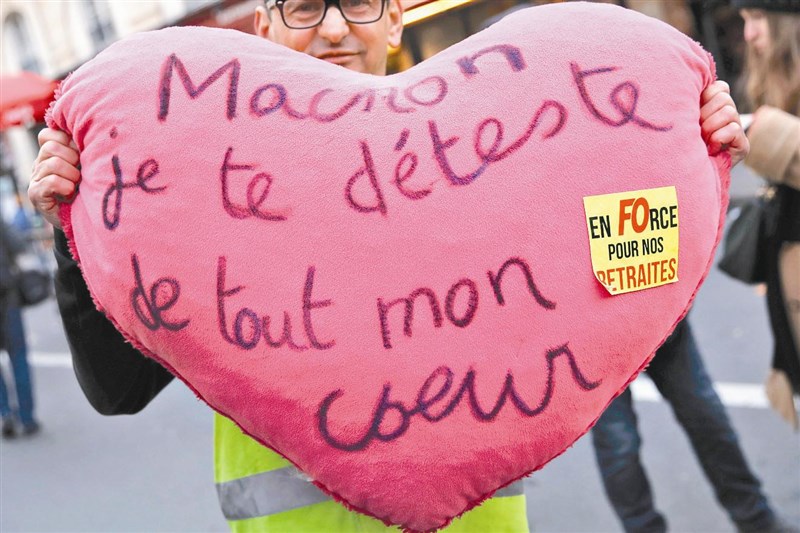 Macron
je te déteste
de tout mon
coeur
EN FORCE
POUR NOS
RETRAITES